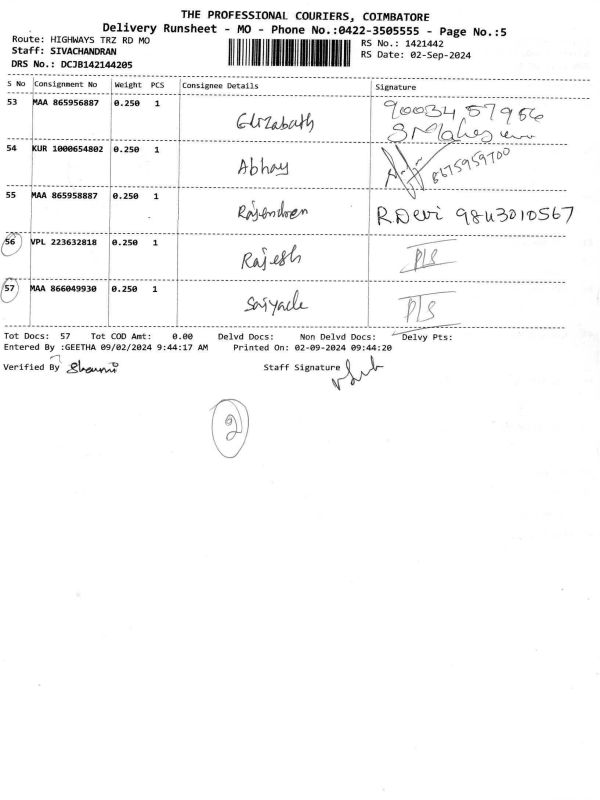 THE PROFESSIONAL COURIERS, COIMBATORE
Delivery Runsheet - MO - Phone No.:0422-3505555 - Page No.:5
Route: HIGHWAYS TRZ RD MO
RS No.: 1421442
Staff: SIVACHANDRAN
RS Date: 02-Sep-2024
DRS No.: DCJB142144205
S No Consignment No Weight PCS Consignee Details Signature
53 MAA 865956887 0.250 1 Elizabath 90034 57956
54 KUR 1000654802 0.250 1 Abhay 8675959700
55 MAA 865958887 0.250 1 Rajendren R.Devi 9843010567
56 VPL 223632818 0.250 1 Rajesh PLS
57 MAA 866049930 0.250 1 Saiyade PLS
Tot Docs: 57 Tot COD Amt: 0.00 Delvd Docs: Non Delvd Docs: Delvy Pts:
Entered By :GEETHA 09/02/2024 9:44:17 AM Printed On: 02-09-2024 09:44:20
Verified By Staff Signature
2